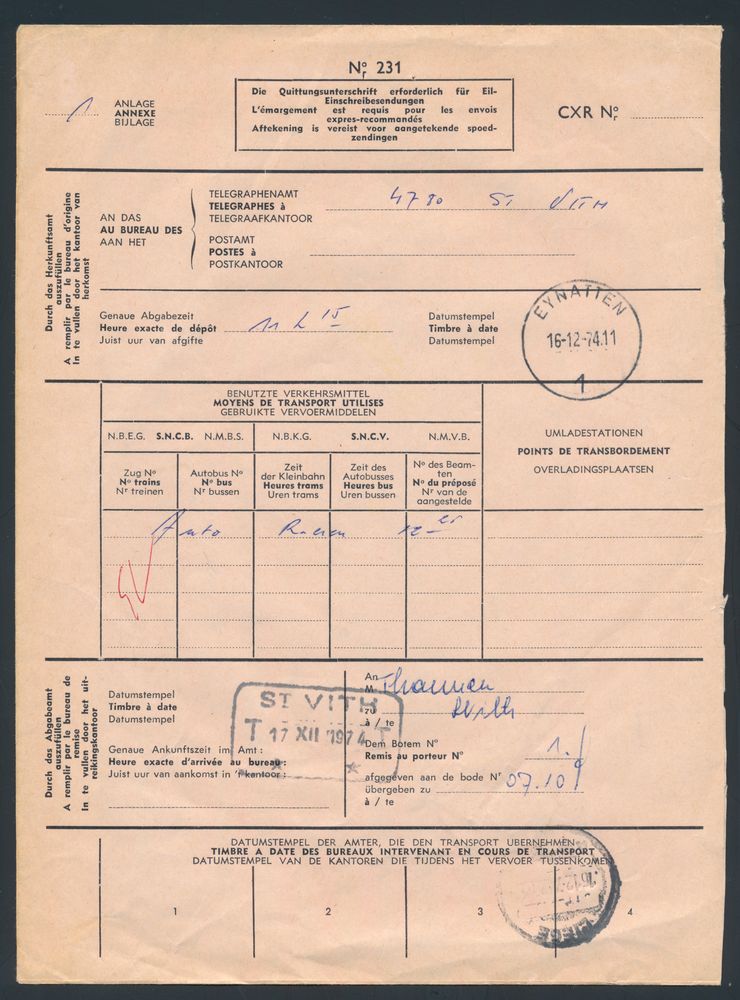 Nr 231
1
ANLAGE
ANNEXE
BIJLAGE
Die Quittungsunterschrift erforderlich für Eil-
Einschreibesendungen
L'émargement est requis pour les envois
expres-recommandés
Aftekening is vereist voor aangetekende spoed-
zendingen
CXR Nr
Durch das Herkunftsamt
auszufüllen
A remplir par le bureau d'origine
In te vullen door het kantoor van
herkomst
AN DAS
AU BUREAU DES
AAN HET
TELEGRAPHENAMT
TELEGRAPHES à
TELEGRAAFKANTOOR
4780 ST VITH
POSTAMT
POSTES à
POSTKANTOOR
Genaue Abgabezeit
Heure exacte de dépôt
Juist uur van afgifte
11 h 15
Datumstempel
Timbre à date
Datumstempel
EYNATTEN
16-12-74.11
1
BENUTZTE VERKEHRSMITTEL
MOYENS DE TRANSPORT UTILISES
GEBRUIKTE VERVOERMIDDELEN
N.B.E.G. S.N.C.B. N.M.B.S.
N.B.K.G. S.N.C.V. N.M.V.B.
UMLADESTATIONEN
POINTS DE TRANSBORDEMENT
OVERLADINGSPLAATSEN
Zug No
No trains
Nr treinen
Autobus No
No bus
Nr bussen
Zeit
der Kleinbahn
Heures trams
Uren trams
Zeit des
Autobusses
Heures bus
Uren bussen
No des Beam-
ten
No du préposé
Nr van de
aangestelde
Auto Raeren 12 25
Durch das Abgabeamt
auszufüllen
A remplir par le bureau de
remise
In te vullen door het uit-
reikingskantoor
Datumstempel
Timbre à date
Datumstempel
ST VITH
T 17 XII 1974 T
Genaue Ankunftszeit im Amt :
Heure exacte d'arrivée au bureau :
Juist uur van aankomst in 't kantoor :
An
M
zu
à / te
Dem Botem No
Remis au porteur No
1.
afgegeven aan de bode Nr
07.10
übergeben zu
à / te
DATUMSTEMPEL DER AMTER, DIE DEN TRANSPORT UBERNEHMEN
TIMBRE A DATE DES BUREAUX INTERVENANT EN COURS DE TRANSPORT
DATUMSTEMPEL VAN DE KANTOREN DIE TIJDENS HET VERVOER TUSSENKOMEN
1 2 3 4
LIEGE